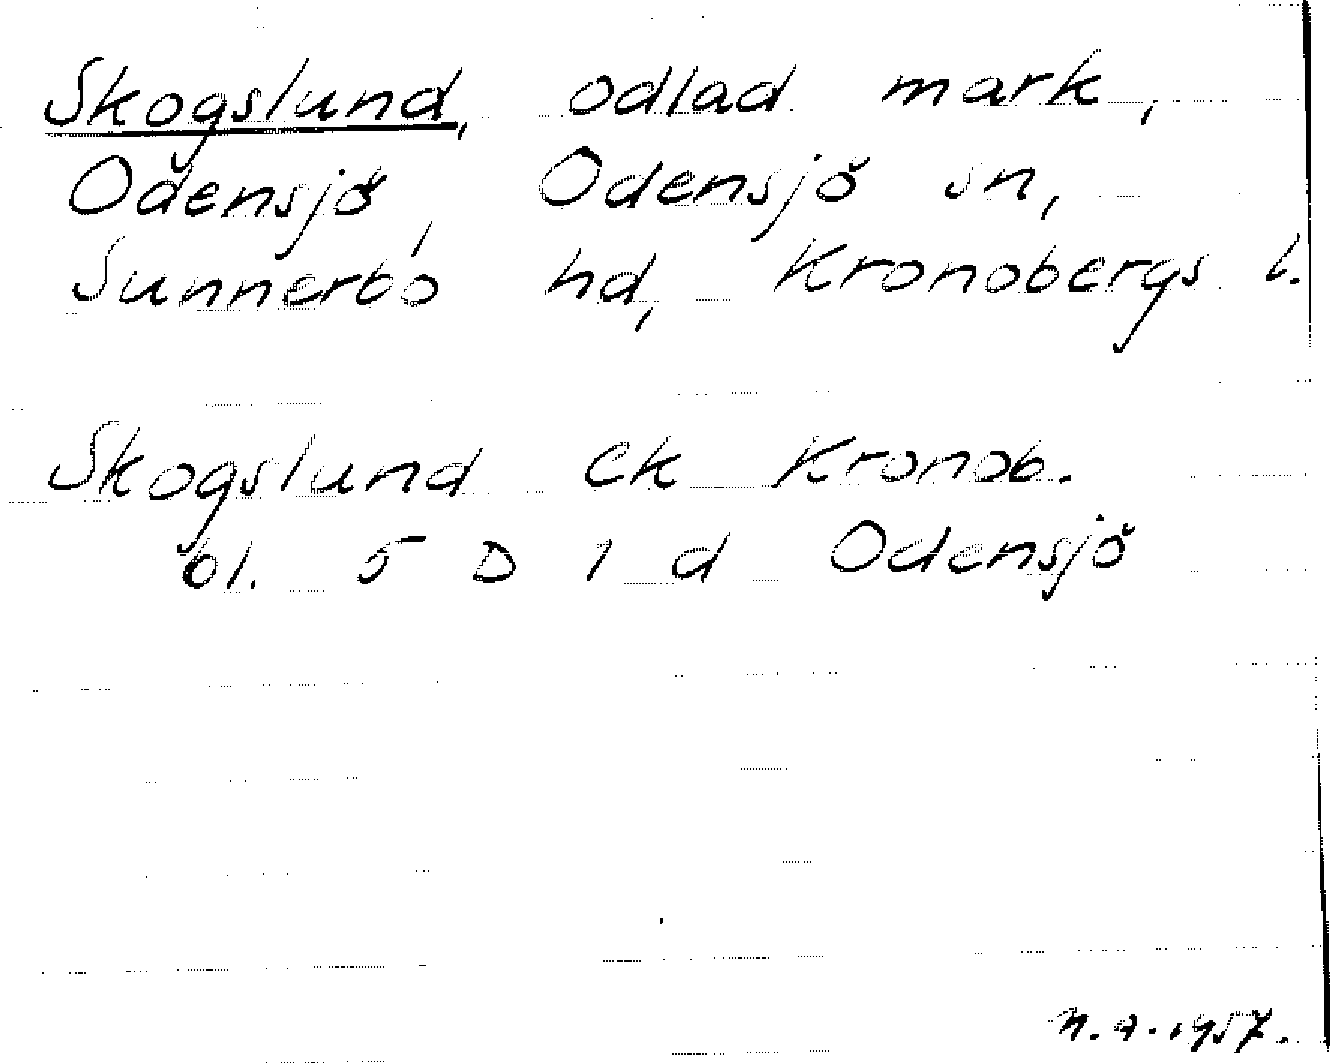 Skogslund, odlad mark,
Odensjö, Odensjö sn,
Sunnerbo hd, Kronobergs l.
Skogslund ek Kronob.
bl. 5 D 1 d Odensjö
N.A. 1957.